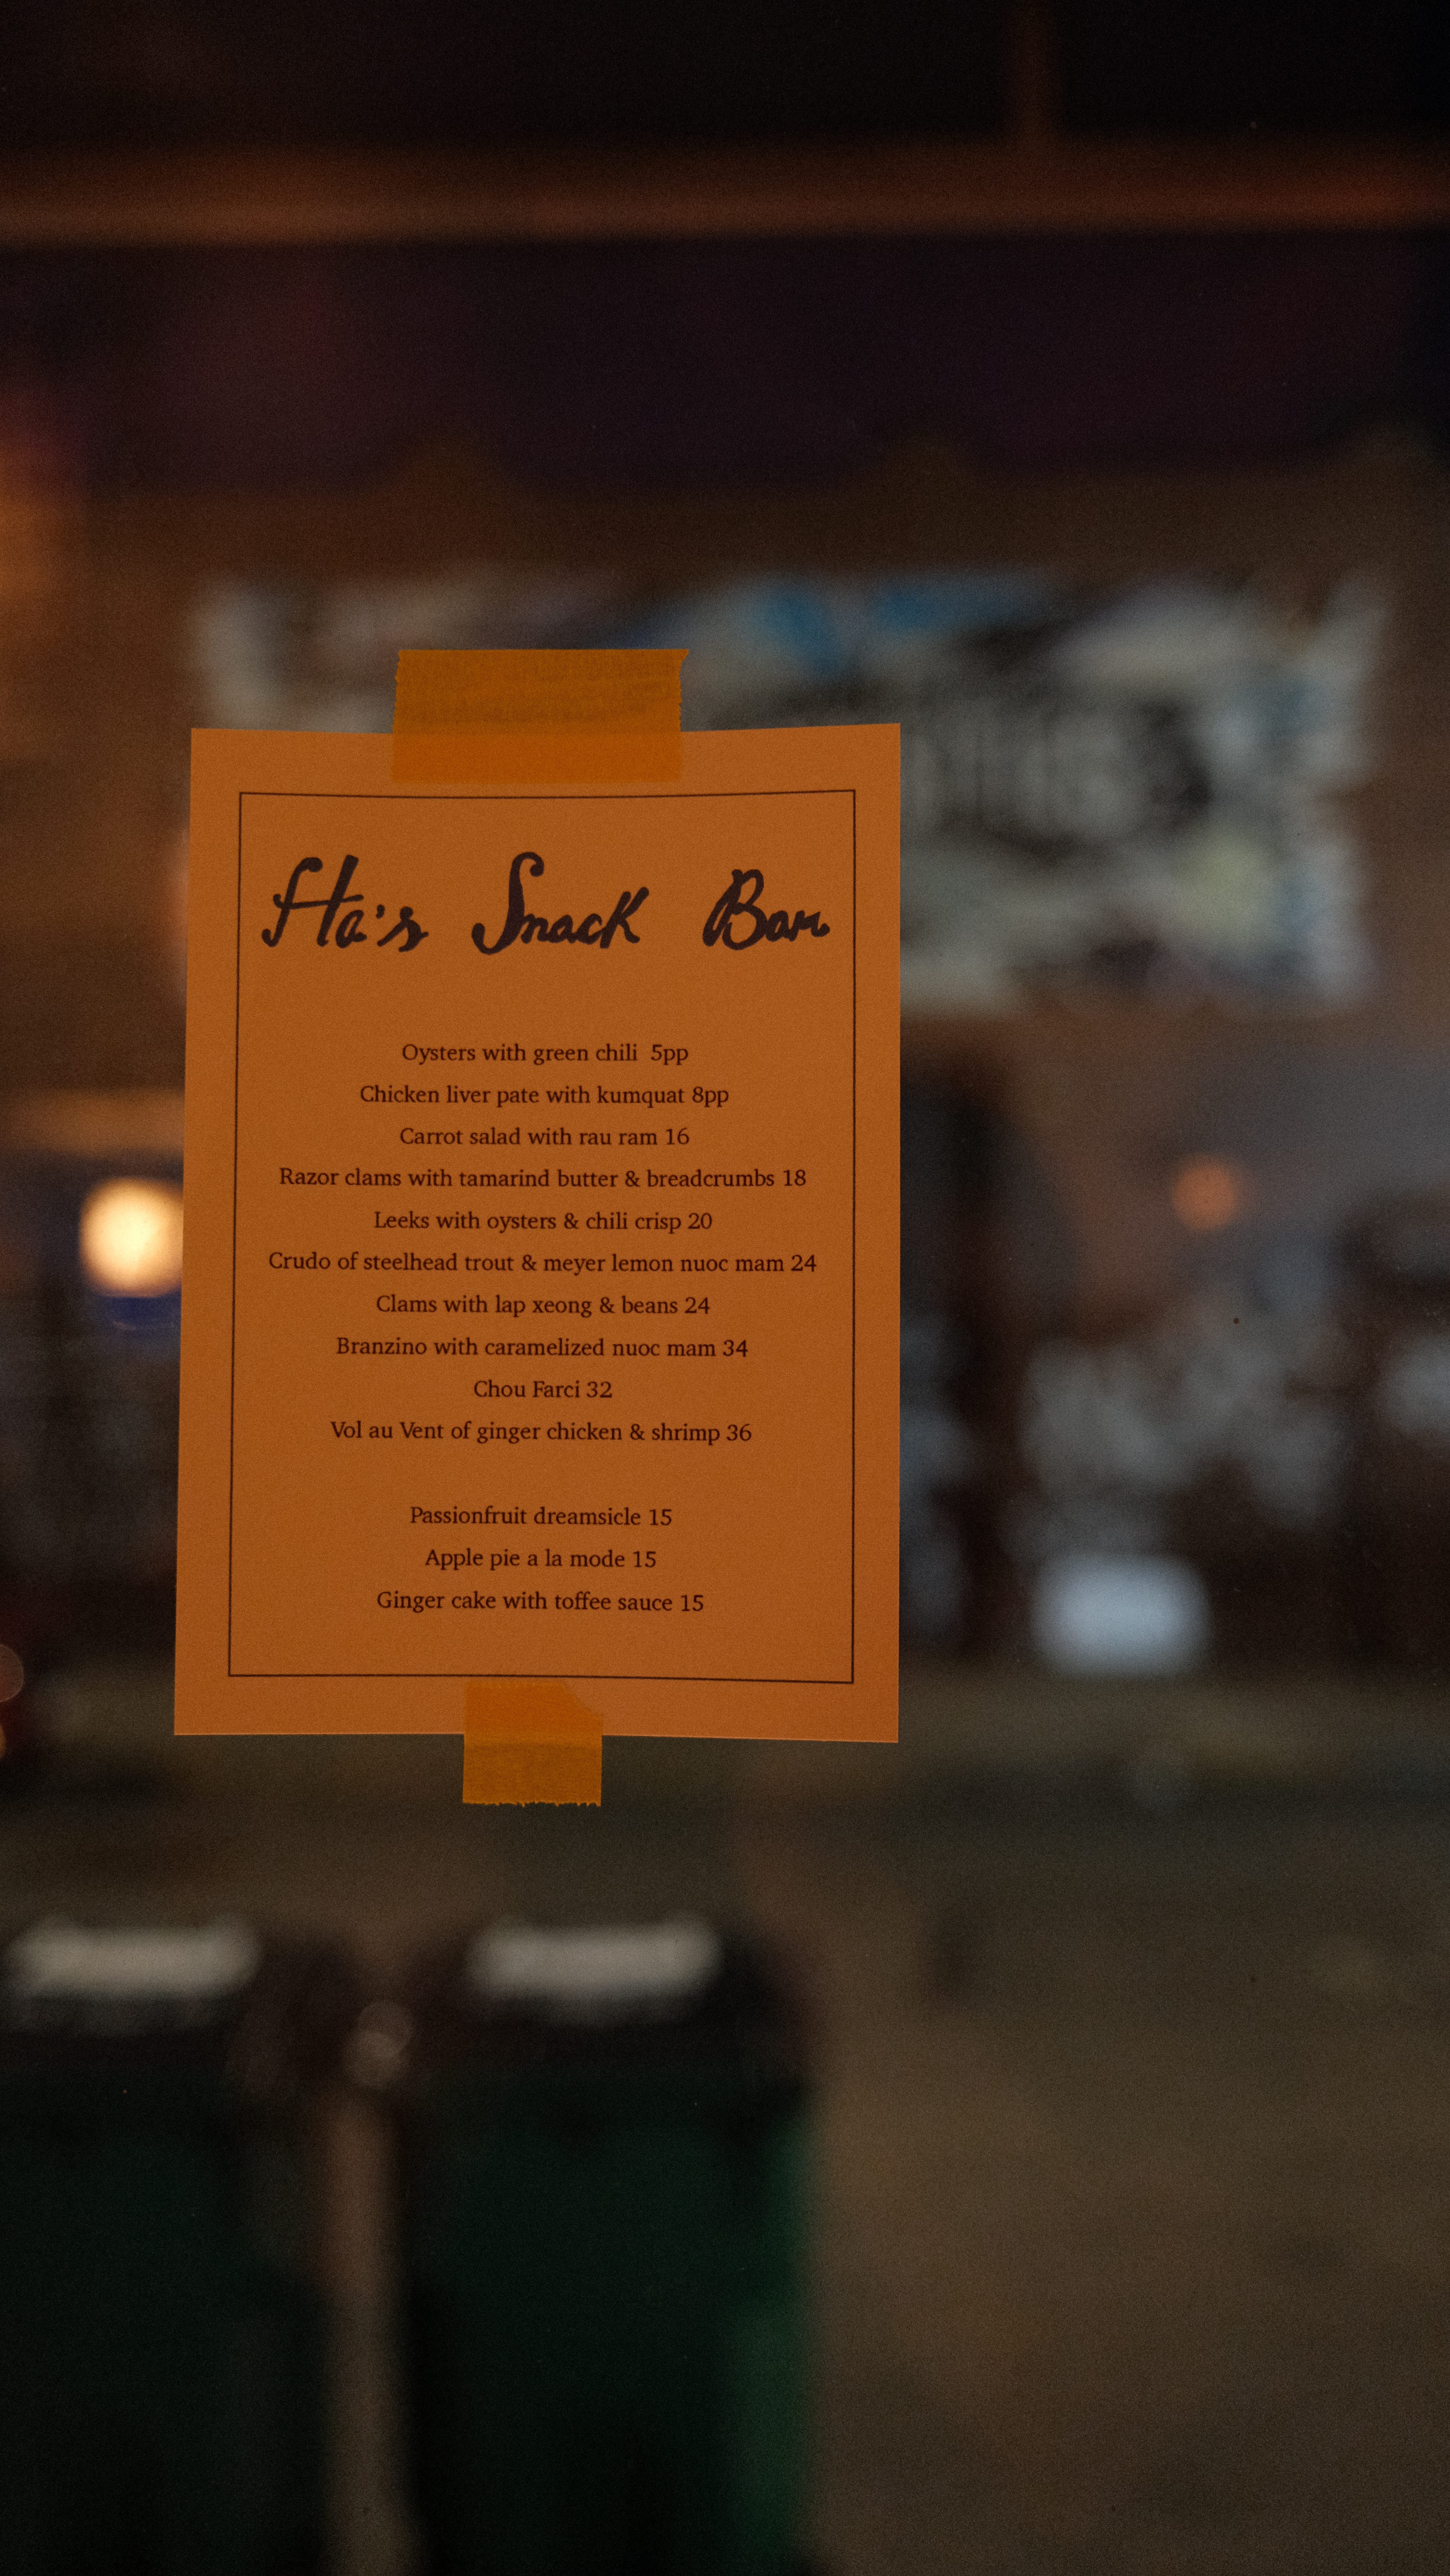 Ha's Snack Bar
Oysters with green chili 5pp
Chicken liver pate with kumquat 8pp
Carrot salad with rau ram 16
Razor clams with tamarind butter & breadcrumbs 18
Leeks with oysters & chili crisp 20
Crudo of steelhead trout & meyer lemon nuoc mam 24
Clams with lap xeong & beans 24
Branzino with caramelized nuoc mam 34
Chou Farci 32
Vol au Vent of ginger chicken & shrimp 36
Passionfruit dreamsicle 15
Apple pie a la mode 15
Ginger cake with toffee sauce 15